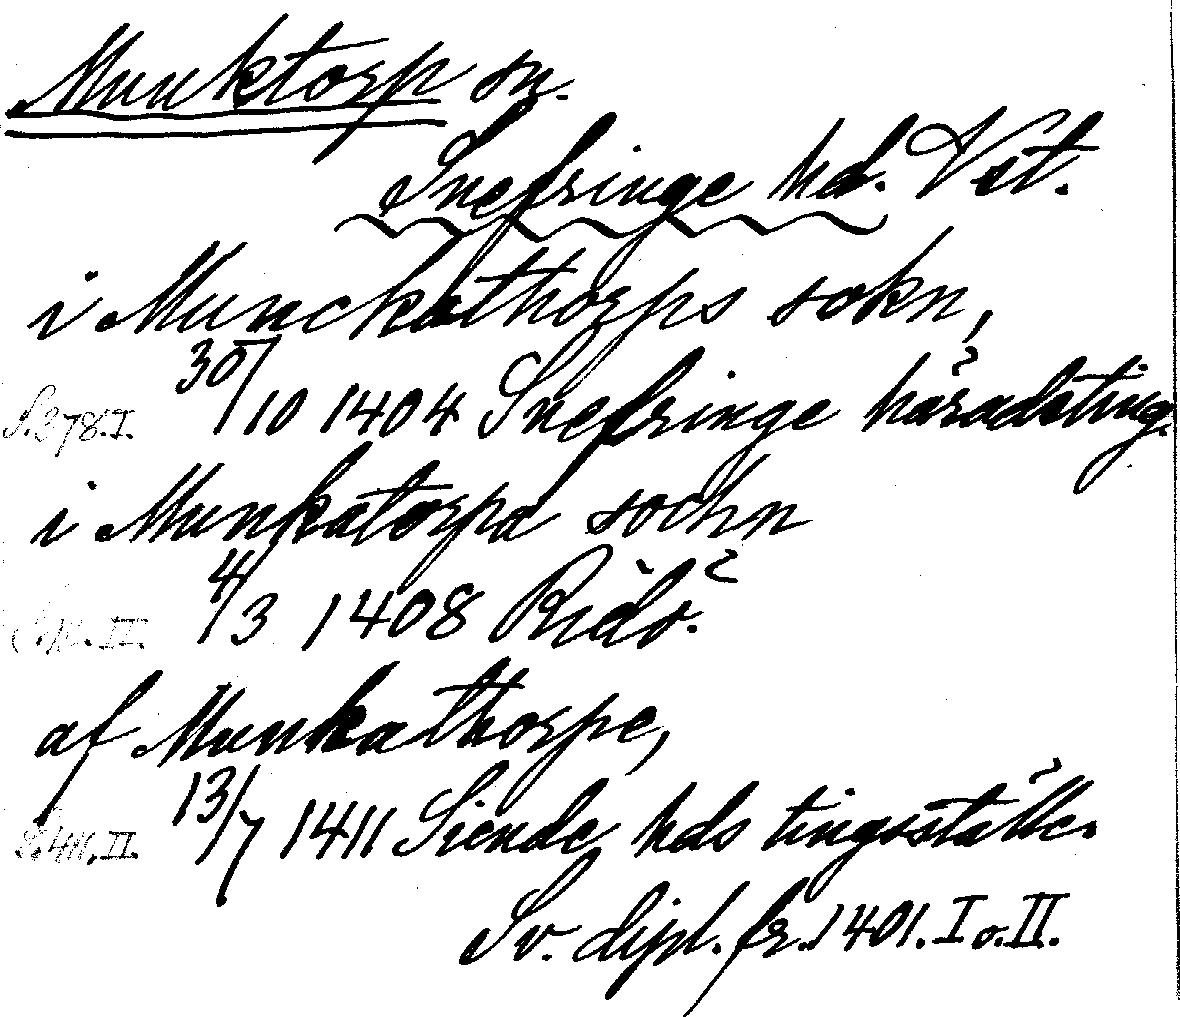 Munktorp sn.
Snefringe hd. Vst.
i Munckathorps sokn,
30/10 1404 Snefringe häradsting.
S. 378. I.
i Munkatorpa sochn
4/3 1408 Ridö.
II.
af Munkathorpe,
13/7 1411 Siende hds tingsställe.
411. II.
Sv. dipl. fr. 1401. I o. II.